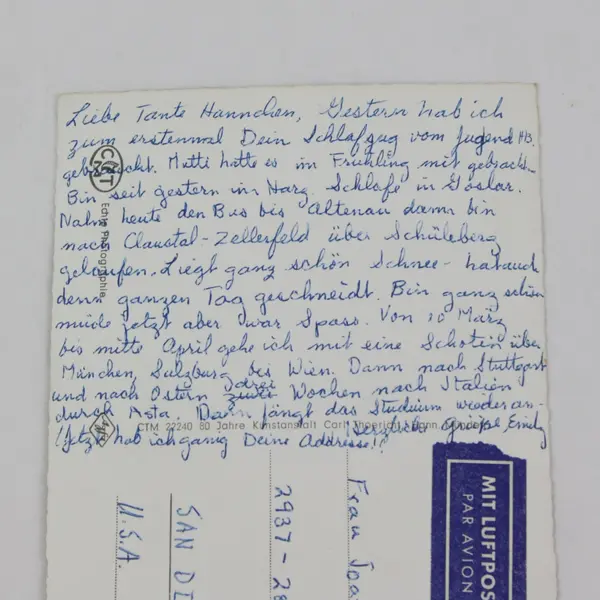 Liebe Tante Hannchen, Gestern hab ich
zum erstenmal Dein Schlafzug vom Jugend HB.
gebraucht. Mutti hatte es im Frühling mit gebracht.
Bin seit gestern im Harz. Schlafe in Goslar.
Nahm heute den Bus bis Altenau dann bin
nach Claustal-Zellerfeld über Schüleberg
gelaufen. Liegt ganz schön Schnee - hat auch
denn ganzen Tag geschneidt. Bin ganz schön
müde jetzt aber war Spass. Von 10 März
bis mitte April gehe ich mit eine Schotin über
München, Sulzburg bis Wien. Dann nach Stuttgart
und nach Ostern drei Wochen nach Italien
durch Asta. Dann fängt das Studium wieder an.
(Jetzt hab ich ganig Deine Addresse!!) herzliche Grüße Emily
CTM 22240 80 Jahre Kunstanstalt Carl
CMT
Echte Photographie
MIT LUFTPOS
PAR AVION
Frau Joa
2937-28
SAN DI
U.S.A.